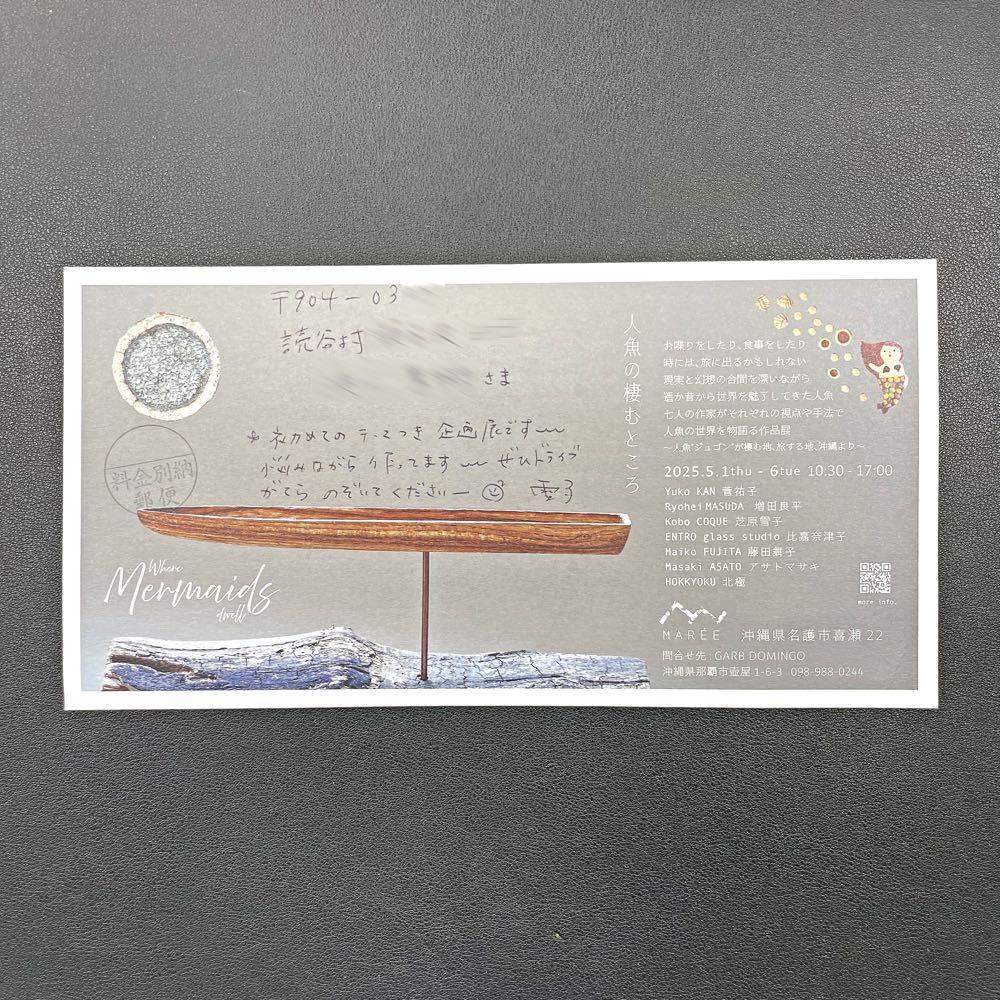 〒904-03
読谷村
さま
☆初めての テーマつき 企画展です〜
悩みながら 作ってます〜 ぜひドライブ
がてら のぞいてくださいー 雪子
料金別納
郵便
Where
Mermaids
dwell
人魚の棲むところ
お喋りをしたり、食事をしたり
時には、旅に出るかもしれない
現実と幻想の合間を漂いながら
遥か昔から世界を魅了してきた人魚
七人の作家がそれぞれの視点や手法で
人魚の世界を物語る作品展
〜人魚"ジュゴン"が棲む地、旅する地、沖縄より〜
2025.5.1thu - 6tue 10:30 - 17:00
Yuko KAN 菅祐子
Ryohei MASUDA 増田良平
Kobo COQUE 芝原雪子
ENTRO glass studio 比嘉奈津子
Maiko FUJITA 藤田舞子
Masaki ASATO アサトマサキ
HOKKYOKU 北極
more info.
MARÉE 沖縄県名護市喜瀬 22
問合せ先 : GARB DOMINGO
沖縄県那覇市壺屋 1-6-3 098-988-0244